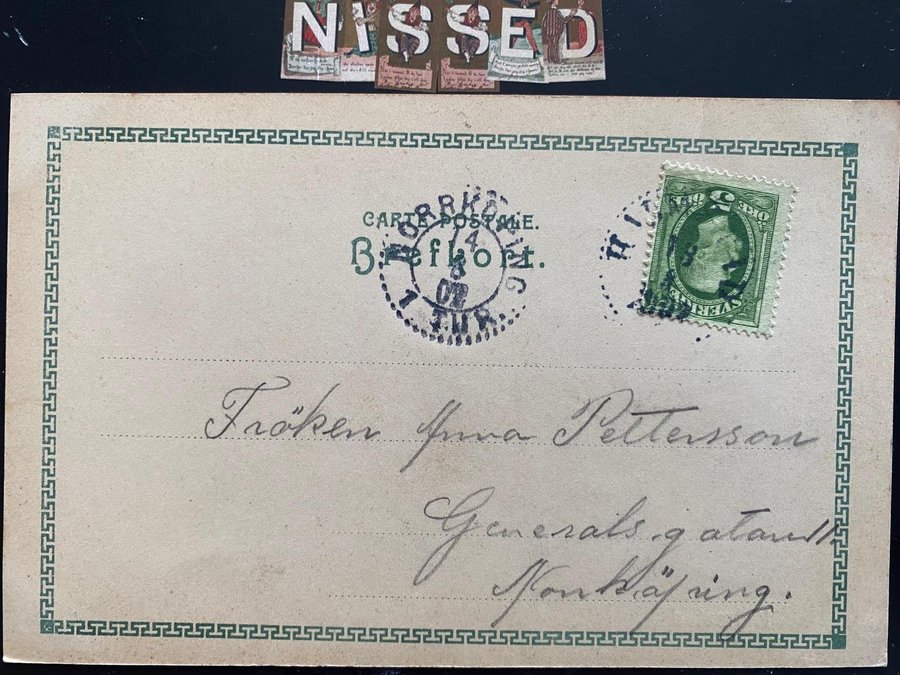 NISSED
CARTE POSTALE.
Brefkort.
NORRKÖPING
14
8
02
1 TUR.
5 ÖRE
SVERIGE
Fröken Anna Pettersson
Generalsgatan 11.
Norrköping.